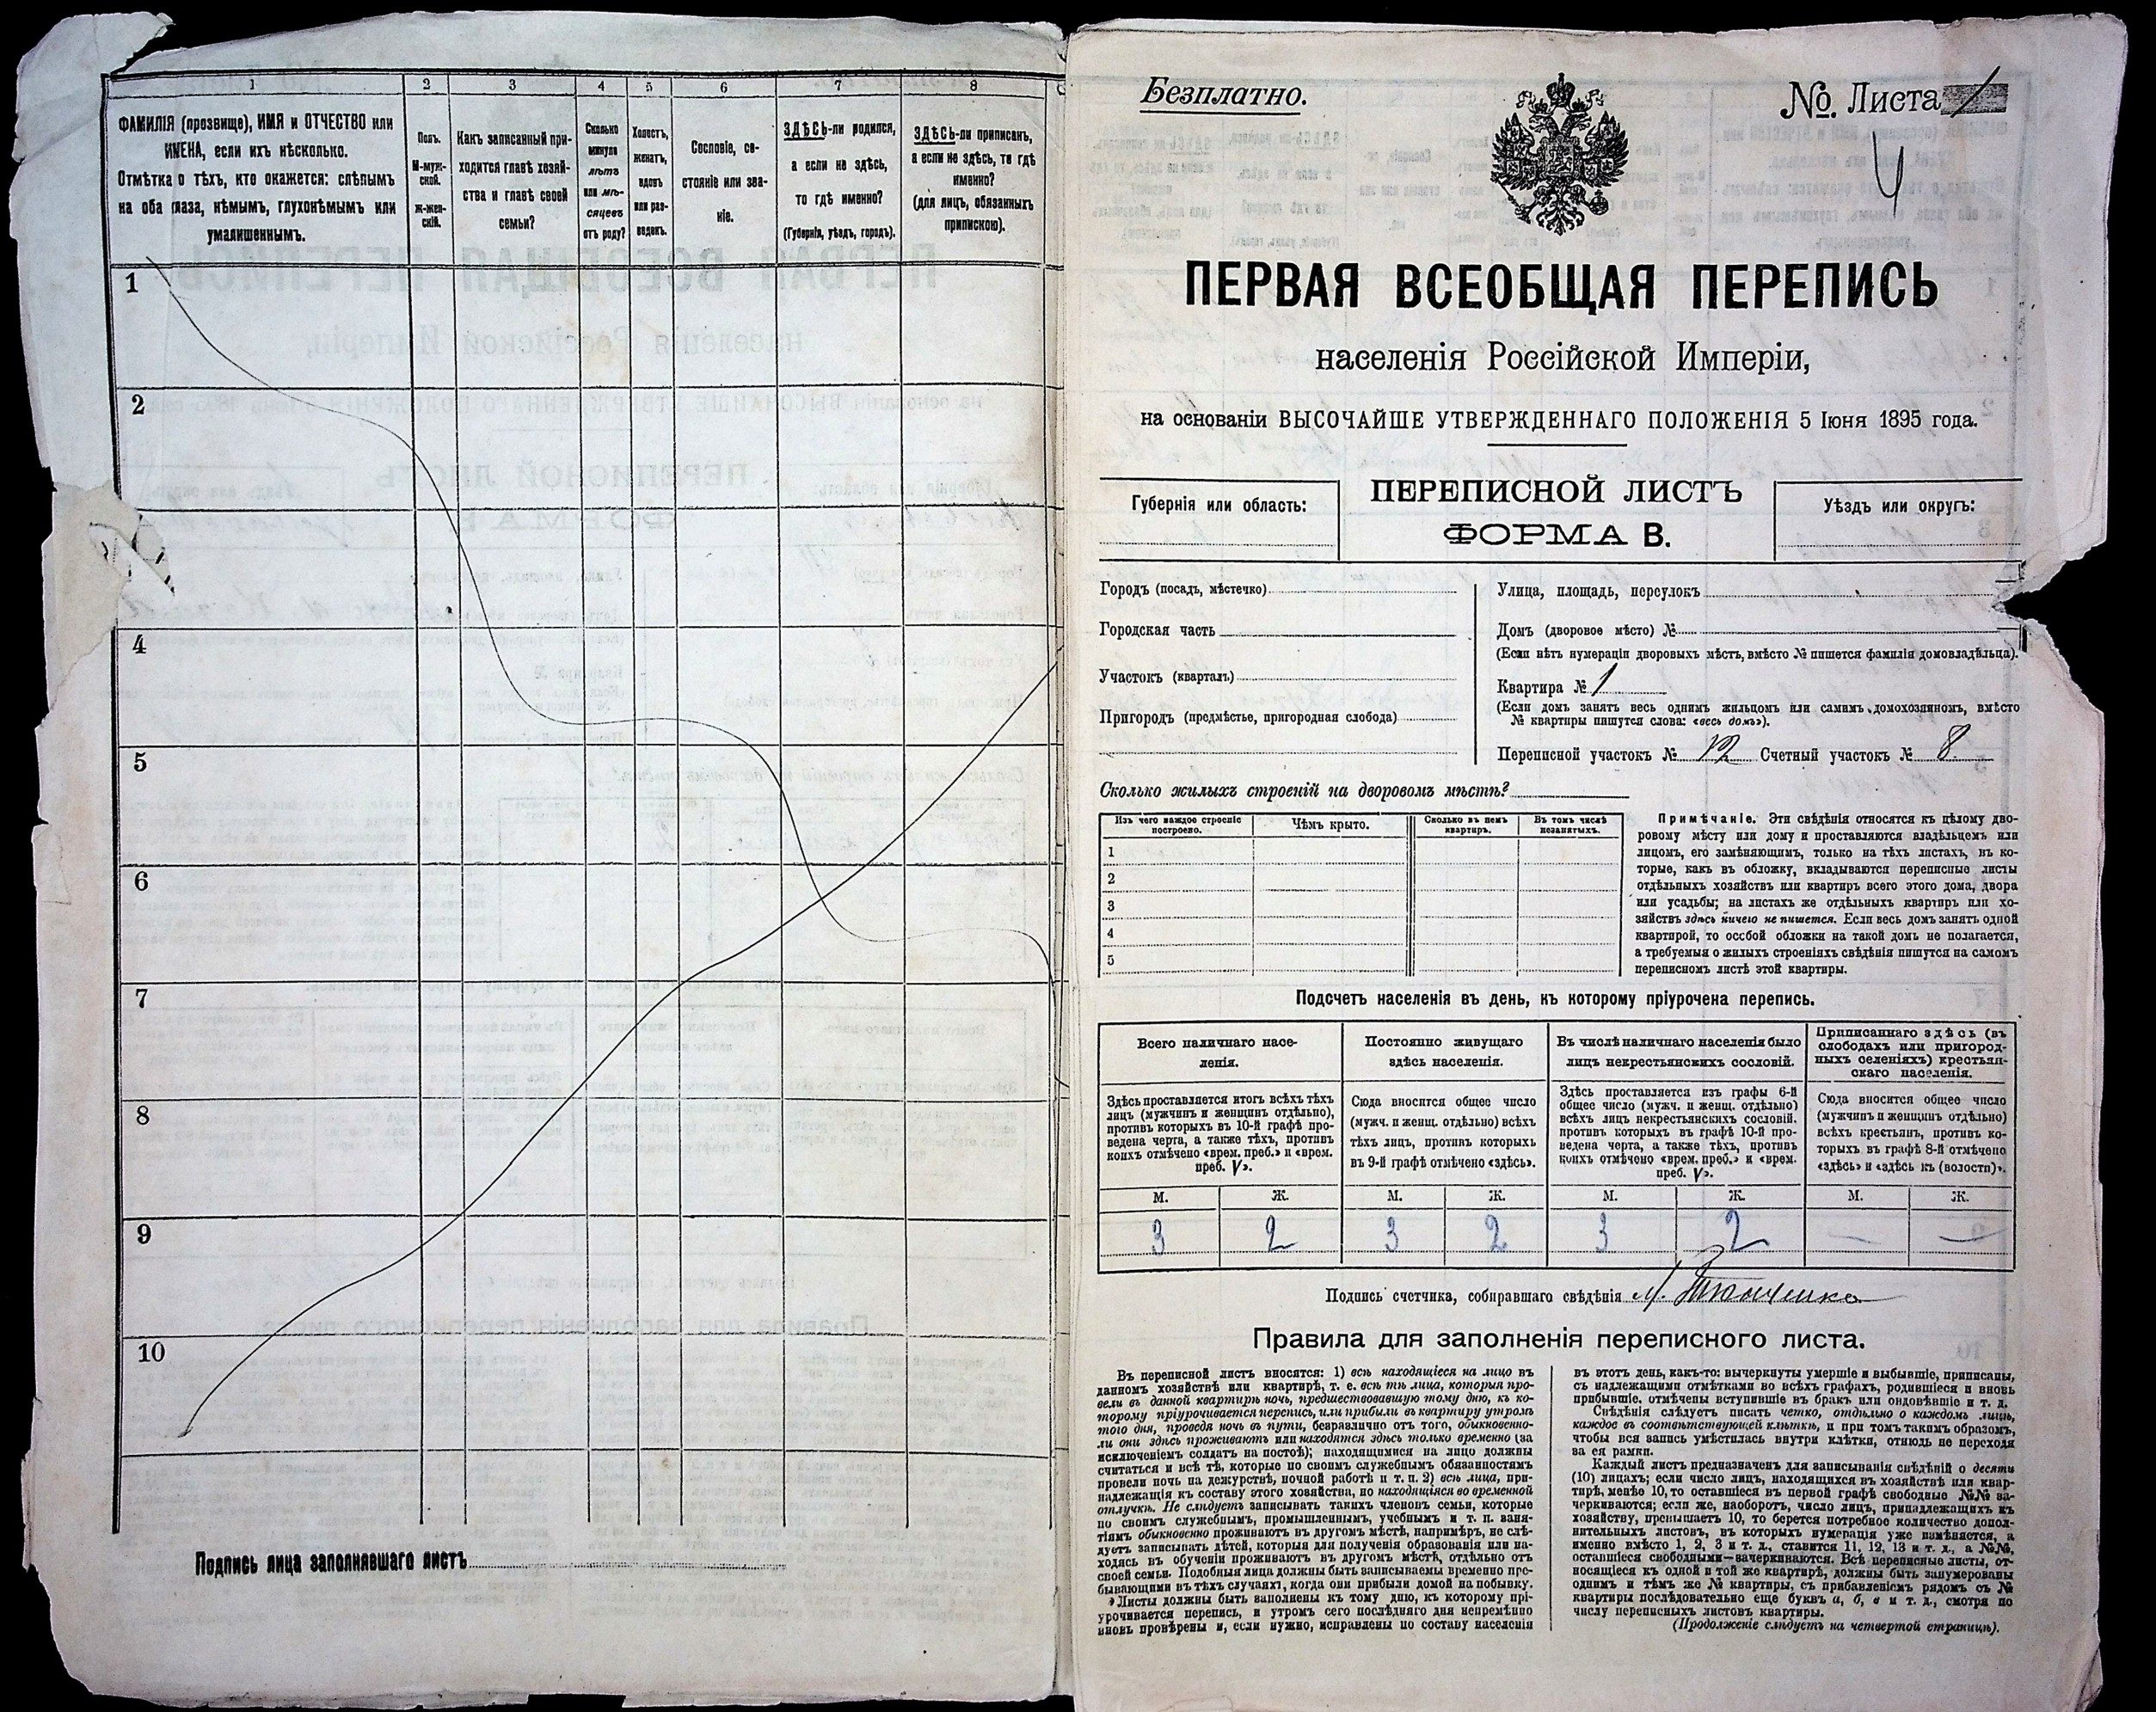 1 2 3 4 5 6 7 8
ФАМИЛІЯ (прозвище), ИМЯ и ОТЧЕСТВО или
ИМЕНА, если ихъ нѣсколько.
Отмѣтка о тѣхъ, кто окажется: слѣпымъ
на оба глаза, нѣмымъ, глухонѣмымъ или
умалишеннымъ.
Полъ.
М-муж-
ской.
Ж-жен-
скій.
Какъ записанный при-
ходится главѣ хозяй-
ства и главѣ своей
семьи?
Сколько
минуло
лѣтъ
или мѣ-
сяцевъ
отъ роду?
Холостъ,
женатъ,
вдовъ
или раз-
веденъ.
Сословіе, со-
стояніе или зва-
ніе.
ЗДѢСЬ-ли родился,
а если не здѣсь,
то гдѣ именно?
(Губернія, уѣздъ, городъ).
ЗДѢСЬ-ли приписанъ,
а если не здѣсь, то гдѣ
именно?
(для лицъ, обязанныхъ
припискою).
1
2
4
5
6
7
8
9
10
Подпись лица заполнявшаго листъ
Безплатно.
№ Листа 1
4
ПЕРВАЯ ВСЕОБЩАЯ ПЕРЕПИСЬ
населенія Россійской Имперіи,
на основаніи ВЫСОЧАЙШЕ УТВЕРЖДЕННАГО ПОЛОЖЕНІЯ 5 Іюня 1895 года.
Губернія или область:
ПЕРЕПИСНОЙ ЛИСТЪ
ФОРМА В.
Уѣздъ или округъ:
Городъ (посадъ, мѣстечко)
Городская часть
Участокъ (кварталъ)
Пригородъ (предмѣстье, пригородная слобода)
Улица, площадь, переулокъ
Домъ (дворовое мѣсто) №
(Если нѣтъ нумераціи дворовыхъ мѣстъ, вмѣсто № пишется фамилія домовладѣльца).
Квартира № 1
(Если домъ занятъ весь однимъ жильцомъ или самимъ домохозяиномъ, вмѣсто
№ квартиры пишутся слова: «весь домъ»).
Переписной участокъ № 12 Счетный участокъ № 8
Сколько жилыхъ строеній на дворовомъ мѣстѣ?
Изъ чего каждое строеніе
построено.
Чѣмъ крыто.
Сколько въ немъ
квартиръ.
Въ томъ числѣ
незанятыхъ.
1
2
3
4
5
Примѣчаніе. Эти свѣдѣнія относятся къ цѣлому дво-
ровому мѣсту или дому и проставляются владѣльцемъ или
лицомъ, его замѣняющимъ, только на тѣхъ листахъ, въ ко-
торые, какъ въ обложку, вкладываются переписные листы
отдѣльныхъ хозяйствъ или квартиръ всего этого дома, двора
или усадьбы; на листахъ же отдѣльныхъ квартиръ или хо-
зяйствъ здѣсь ничего не пишется. Если весь домъ занятъ одной
квартирой, то особой обложки на такой домъ не полагается,
а требуемыя о жилыхъ строеніяхъ свѣдѣнія пишутся на самомъ
переписномъ листѣ этой квартиры.
Подсчетъ населенія въ день, къ которому пріурочена перепись.
Всего наличнаго насе-
ленія.
Постоянно живущаго
здѣсь населенія.
Въ числѣ наличнаго населенія было
лицъ некрестьянскихъ сословій.
Приписаннаго здѣсь (въ
слободахъ или пригород-
ныхъ селеніяхъ) крестьян-
скаго населенія.
Здѣсь проставляется итогъ всѣхъ тѣхъ
лицъ (мужчинъ и женщинъ отдѣльно),
противъ которыхъ въ 10-й графѣ про-
ведена черта, а также тѣхъ, противъ
коихъ отмѣчено «врем. преб.» и «врем.
преб. V».
Сюда вносится общее число
(мужч. и женщ. отдѣльно) всѣхъ
тѣхъ лицъ, противъ которыхъ
въ 9-й графѣ отмѣчено «здѣсь».
Здѣсь проставляется изъ графы 6-й
общее число (мужч. и женщ. отдѣльно)
всѣхъ лицъ некрестьянскихъ сословій,
противъ которыхъ въ графѣ 10-й про-
ведена черта, а также тѣхъ, противъ
коихъ отмѣчено «врем. преб.» и «врем.
преб. V».
Сюда вносится общее число
(мужчинъ и женщинъ отдѣльно)
всѣхъ крестьянъ, противъ ко-
торыхъ въ графѣ 8-й отмѣчено
«здѣсь» и «здѣсь къ (волости)».
М. Ж. М. Ж. М. Ж. М. Ж.
3 2 3 2 3 2 — —
Подпись счетчика, собиравшаго свѣдѣнія
Правила для заполненія переписного листа.
Въ переписной листъ вносятся: 1) всѣ находящіеся на лицо въ
данномъ хозяйствѣ или квартирѣ, т. е. всѣ тѣ лица, которыя про-
вели въ данной квартирѣ ночь, предшествовавшую тому дню, къ ко-
торому пріурочивается перепись, или прибыли въ квартиру утромъ
того дня, проведя ночь въ пути, безразлично отъ того, обыкновенно-
ли они здѣсь проживаютъ или находятся здѣсь только временно (за
исключеніемъ солдатъ на постоѣ); находящимися на лицо должны
считаться и всѣ тѣ, которые по своимъ служебнымъ обязанностямъ
провели ночь на дежурствѣ, ночной работѣ и т. п. 2) всѣ лица, при-
надлежащія къ составу этого хозяйства, но находящіяся во временной
отлучкѣ. Не слѣдуетъ записывать такихъ членовъ семьи, которые
по своимъ служебнымъ, промышленнымъ, учебнымъ и т. п. заня-
тіямъ обыкновенно проживаютъ въ другомъ мѣстѣ, напримѣръ, не слѣ-
дуетъ записывать дѣтей, которыя для полученія образованія или на-
ходясь въ обученіи проживаютъ въ другомъ мѣстѣ, отдѣльно отъ
своей семьи. Подобныя лица должны быть записываемы временно пре-
бывающими въ тѣхъ случаяхъ, когда они прибыли домой на побывку.
Листы должны быть заполнены къ тому дню, къ которому прі-
урочивается перепись, и утромъ сего послѣдняго дня непремѣнно
вновь провѣрены и, если нужно, исправлены по составу населенія
въ этотъ день, какъ-то: вычеркнуты умершіе и выбывшіе, приписаны,
съ надлежащими отмѣтками во всѣхъ графахъ, родившіеся и вновь
прибывшіе, отмѣчены вступившіе въ бракъ или овдовѣвшіе и т. д.
Свѣдѣнія слѣдуетъ писать четко, отдѣльно о каждомъ лицѣ,
каждое въ соотвѣтствующей клѣткѣ, и при томъ такимъ образомъ,
чтобы вся запись умѣстилась внутри клѣтки, отнюдь не переходя
за ея рамки.
Каждый листъ предназначенъ для записыванія свѣдѣній о десяти
(10) лицахъ; если число лицъ, находящихся въ хозяйствѣ или квар-
тирѣ, менѣе 10, то оставшіеся въ первой графѣ свободные №№ за-
черкиваются; если же, наоборотъ, число лицъ, принадлежащихъ къ
хозяйству, превышаетъ 10, то берется потребное количество допол-
нительныхъ листовъ, въ которыхъ нумерація уже измѣняется, а
именно вмѣсто 1, 2, 3 и т. д., ставится 11, 12, 13 и т. д., а №№,
оставшіеся свободными—зачеркиваются. Всѣ переписные листы, от-
носящіеся къ одной и той же квартирѣ, должны быть занумерованы
однимъ и тѣмъ же № квартиры, съ прибавленіемъ рядомъ съ №
квартиры послѣдовательно еще буквъ а, б, в и т. д., смотря по
числу переписныхъ листовъ квартиры.
(Продолженіе слѣдуетъ на четвертой страницѣ).